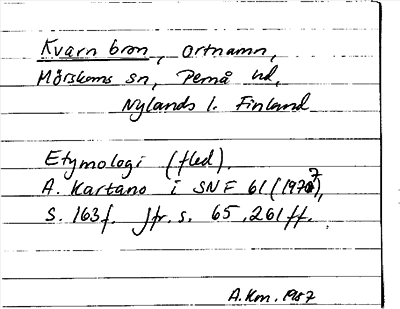 Kvarn bron, ortnamn,
Mörskoms sn, Pernå hd,
Nylands l. Finland
Etymologi (fled).
A. Kartano i SNF 61 (1970),
s. 163f. Jfr. s. 65, 261 ff.
A.Km. 1987